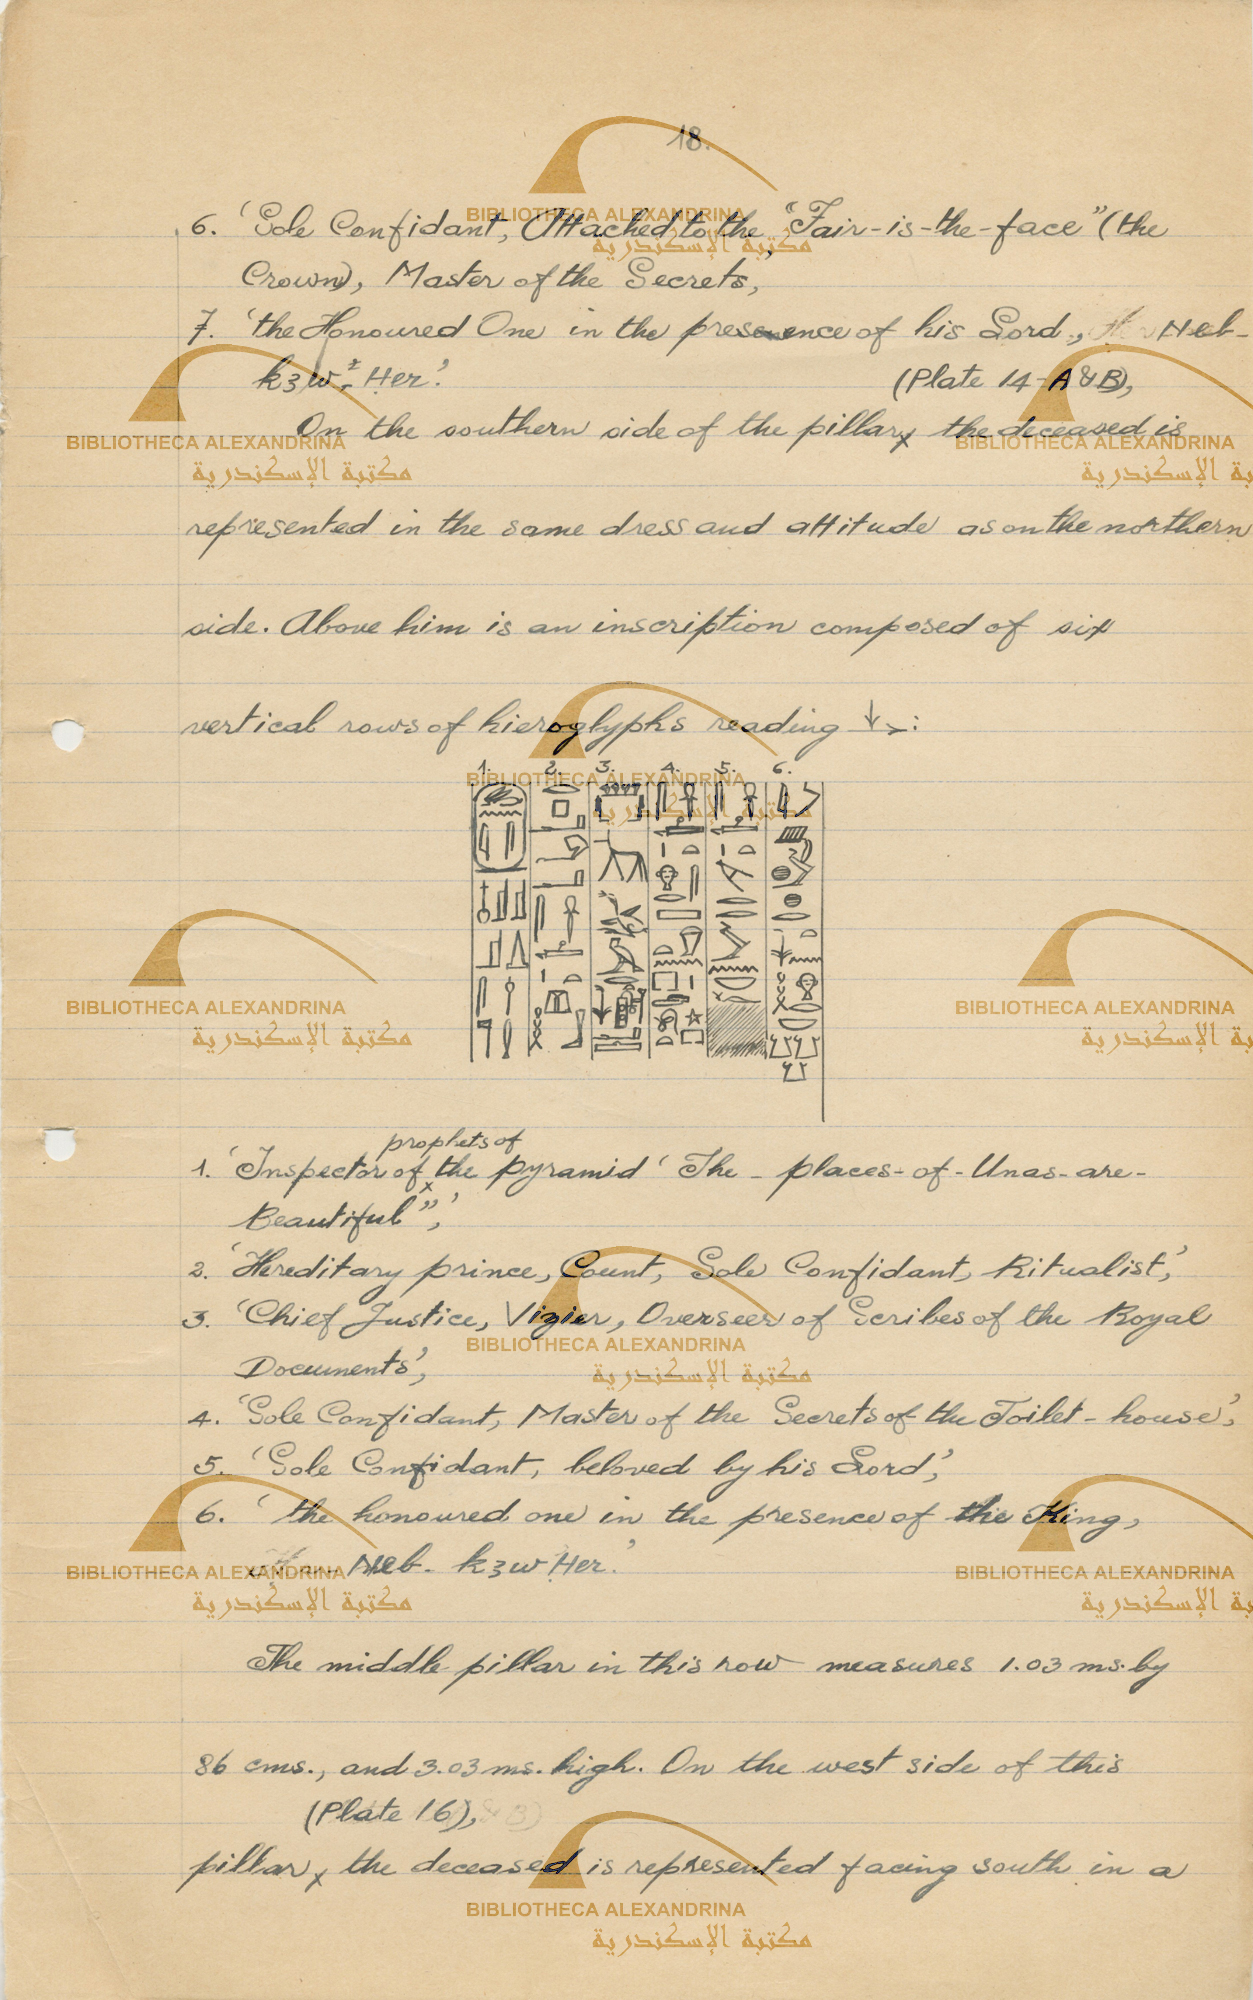 18.
6. 'Sole Confidant, Attached to the "Fair-is-the-face" (the
Crown), Master of the Secrets,
7. 'the Honoured One in the presence of his Lord, Neb-
k3w-Her.'
(Plate 14-A&B),
On the southern side of the pillar x the deceased is
represented in the same dress and attitude as on the northern
side. Above him is an inscription composed of six
vertical rows of hieroglyphs reading ↓→:
1. 2. 3. 4. 5. 6.
prophets of
1. 'Inspector of x the pyramid 'The - places - of - Unas - are -
Beautiful",'
2. 'Hereditary prince, Count, Sole Confidant, Ritualist,'
3. 'Chief Justice, Vizier, Overseer of Scribes of the Royal
Documents',
4. 'Sole Confidant, Master of the Secrets of the Toilet-house',
5. 'Sole Confidant, beloved by his Lord',
6. 'the honoured one in the presence of the King,
Neb- k3w Her.'
The middle pillar in this row measures 1.03 ms. by
86 cms., and 3.03 ms. high. On the west side of this
(Plate 16),
pillar x the deceased is represented facing south in a
BIBLIOTHECA ALEXANDRINA
مكتبة الإسكندرية